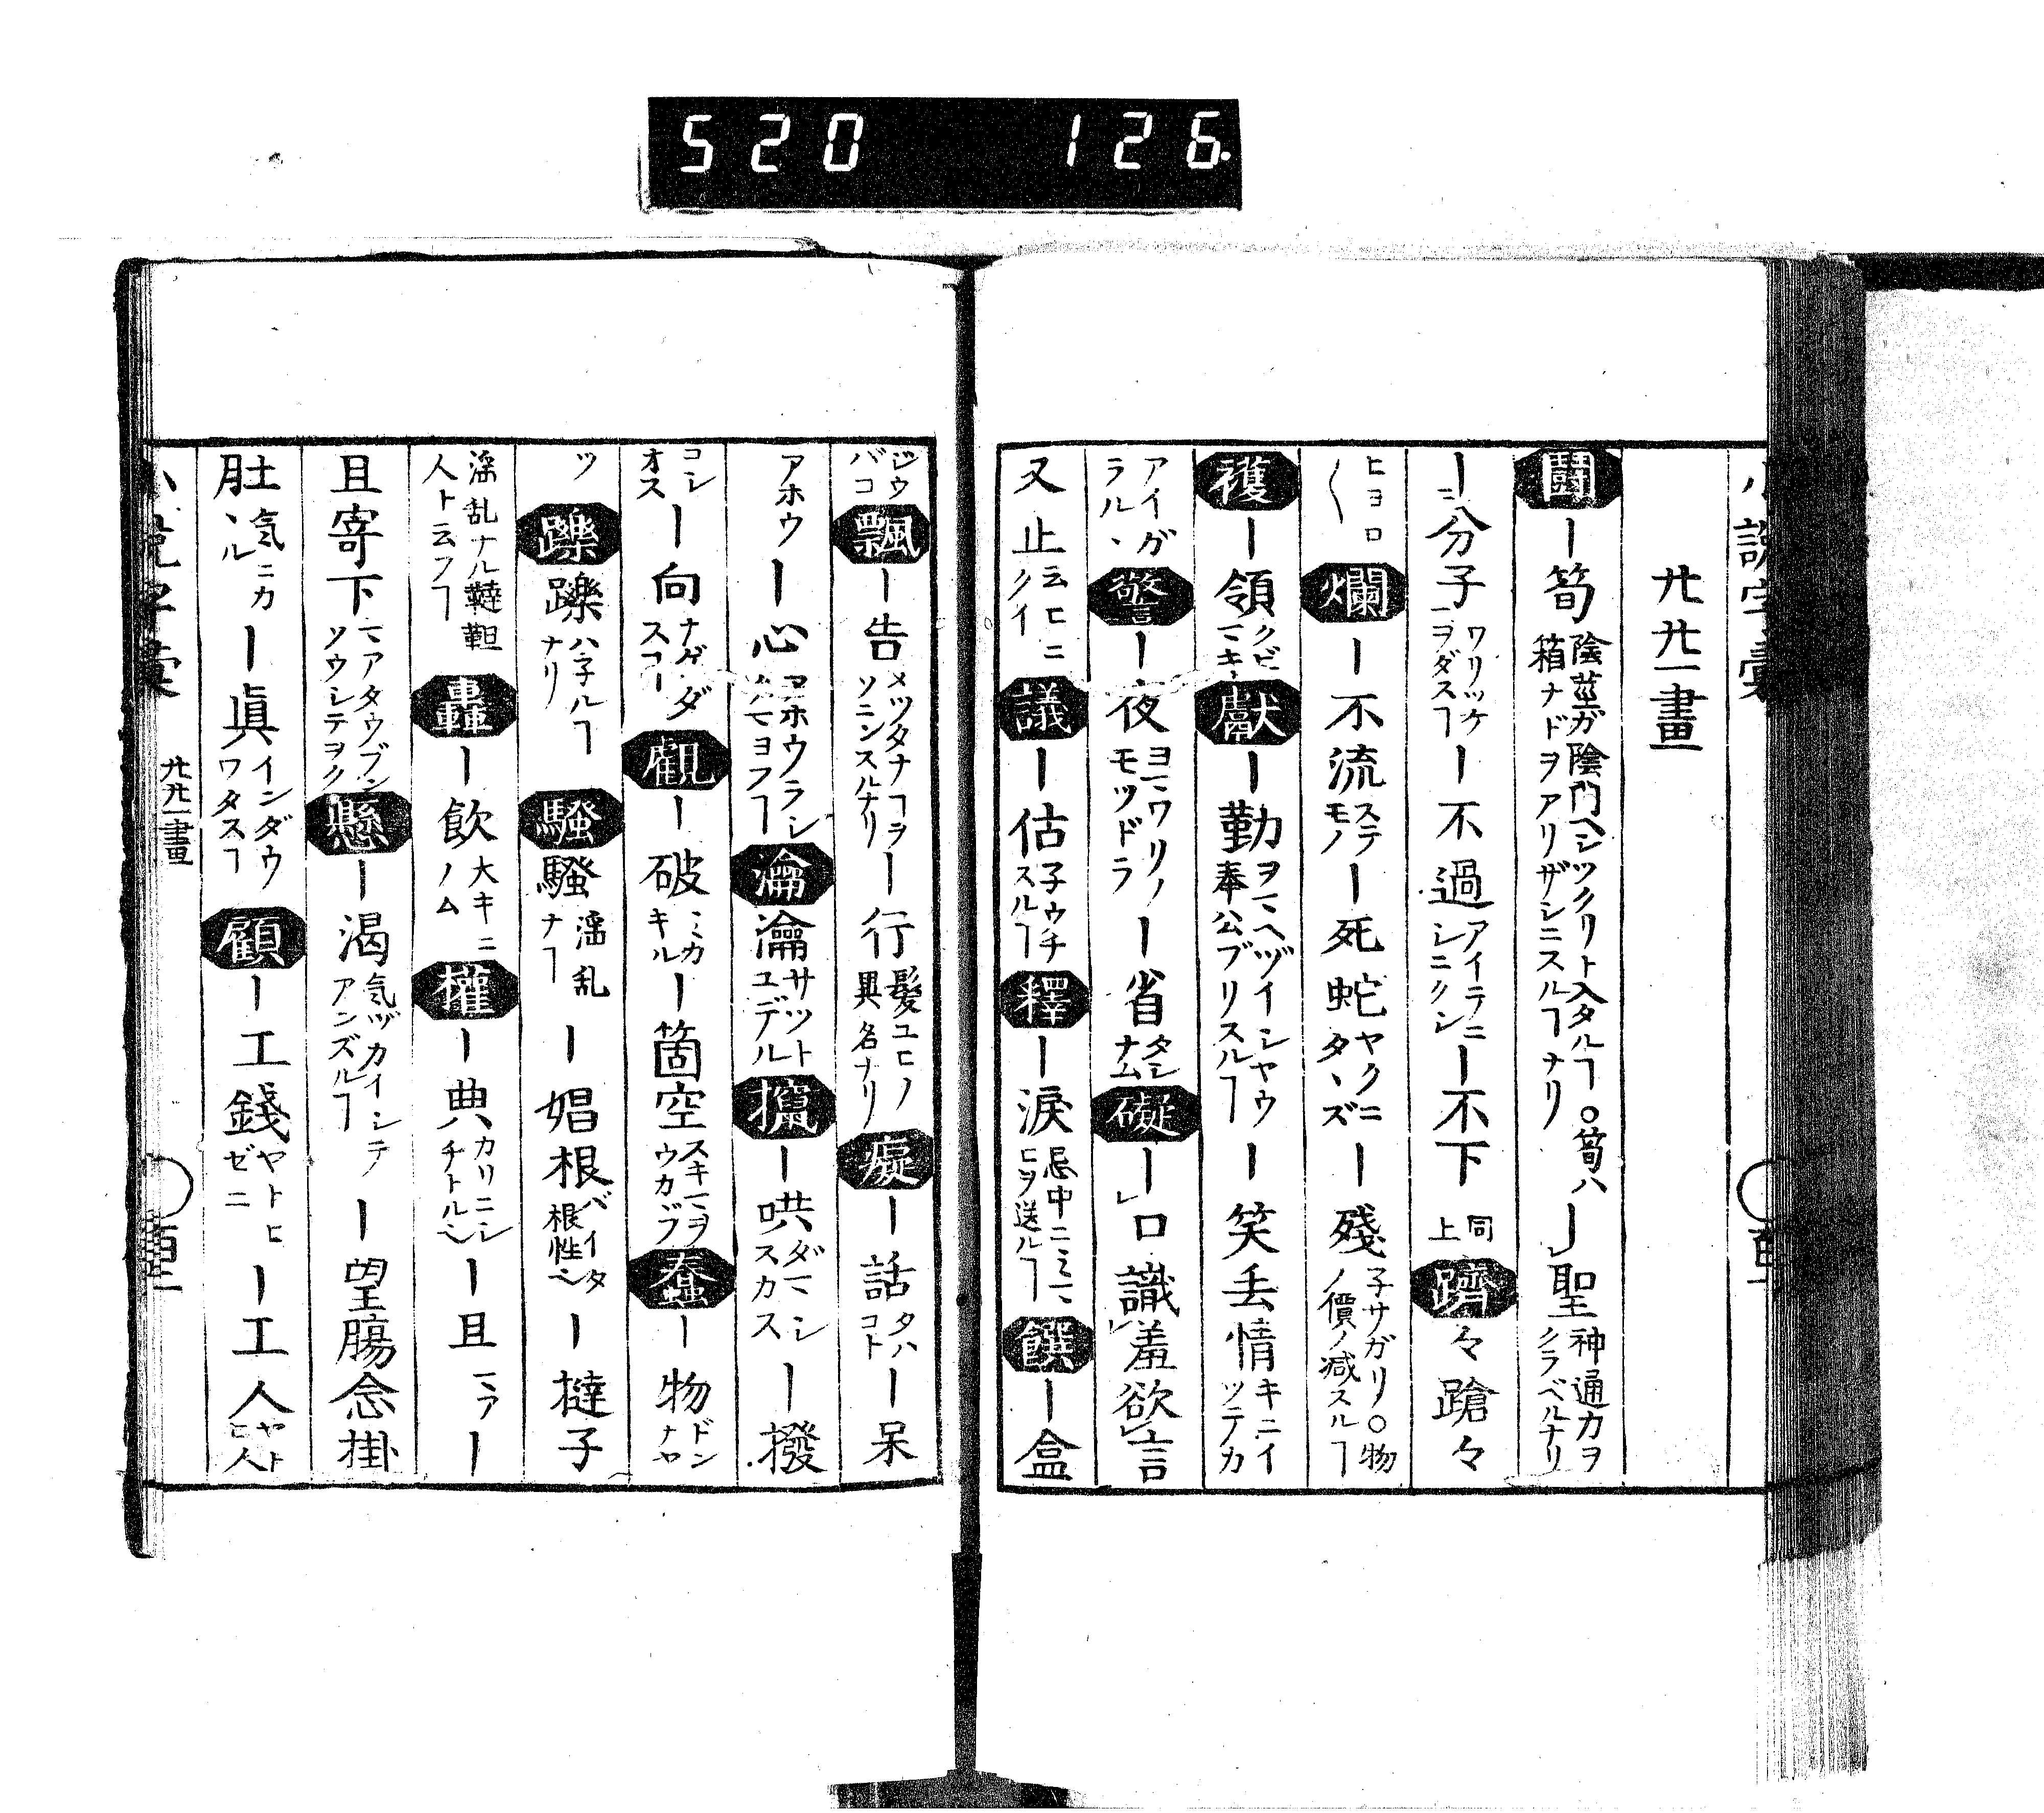 520 126.
小説字彙
廿廿一畫
鬪ー筍 陰莖ガ陰門ヘシツクリト入タルヿ○筍ハ箱ナドヲアリザシニスルヿナリ ー聖 神通力ヲクラベルナリ
ー分子 ワリツケヲダスヿ ー不過 アイテニシニクシ ー不下 同上 躋々蹌々
ヒヨロ〱 爛ー不流 ステモノ ー死蛇 ヤクニタヽズ ー殘 子サガリ○物ノ價ノ减スルヿ
襆ー領 クビマキ 獻ー勤 ヲヽヘヅイシヤウ奉公ブリスルヿ ー笑丢情 キニイツテカ
アイガラルヽ 警ー夜 ヨマワリノモツドラ ー省 タシナム 礙ー口識羞欲言
又止 云ヒニクイ 議ー估 子ウチスルヿ 釋ー淚 忌中ニミマヒヲ送ルヿ 饌ー盒
ジウバコ 飄ー告 メツタナコヲソニンスルナリ ー行 髮ユヒノ異名ナリ 癡ー話 タハコト ー呆
アホウ ー心 アホウラシクマヨフヿ 瀹瀹 サツトユデル 攛ー哄 ダマシスカス ー撥
コシオス ー向 ナゲダスヿ 觀ー破 ミカキル ー箇空 スキマヲウカヾフ 蠢ー物 ドンナヤ
ツ 躒躒 ハ子ルヿナリ 騷騷 滛乱ナヿ ー娼根 バイタ根性 ー㨫子
滛乱ナル韃靼人ト云フヿ 轟ー飲 大キニノム 權ー典 カリニシチトル ー且 マア ー
且寄下 マアタウブンソウシテヲク 懸ー渴 気ヅカイシテアンズルヿ ー望膓念掛
肚 気ニカヽル ー眞 インダウワタスヿ 顧ー工錢 ヤトヒゼニ ー工人 ヤトヒ人
小説字彙 廿廿一畫